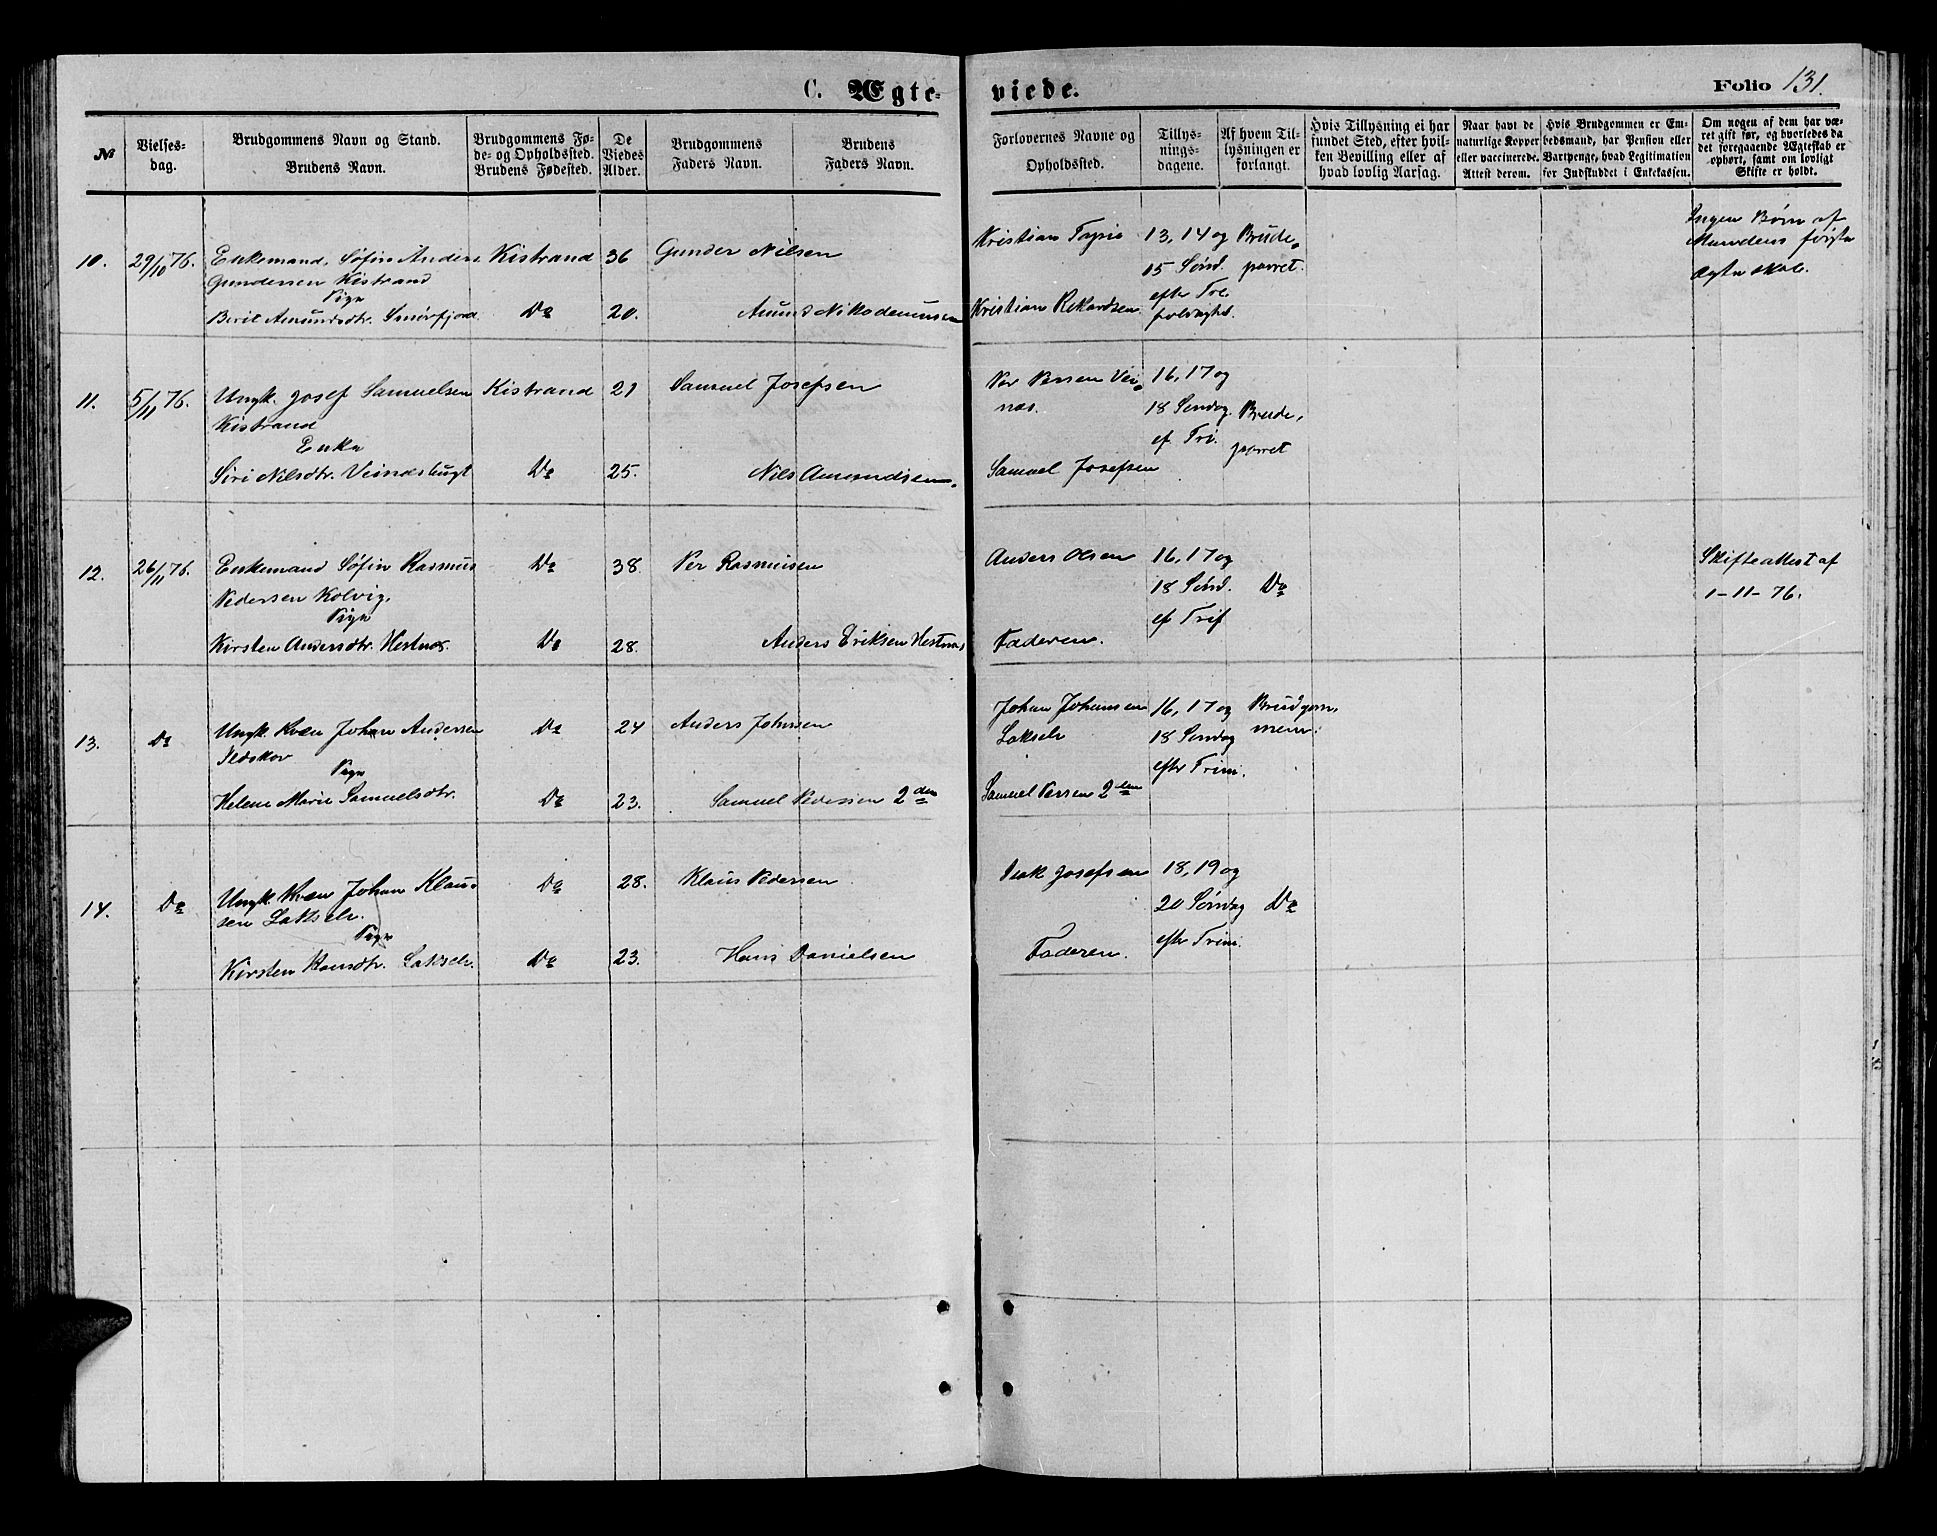 C. Ægte-
viede.
Folio 131.
№
Vielses-
dag.
Brudgommens Navn og Stand.
Brudens Navn.
Brudgommens Fø-
de- og Opholdssted.
Brudens Fødested.
De
Viedes
Alder.
Brudgommens
Faders Navn.
Brudens
Faders Navn.
Forlovernes Navne og
Opholdssted.
Tillys-
nings-
dagene.
Af hvem Til-
lysningen er
forlangt.
Hvis Tillysning ei har
fundet Sted, efter hvil-
ken Bevilling eller af
hvad lovlig Aarsag.
Naar havt de
naturlige Kopper
eller vaccinerede.
Attest derom.
Hvis Brudgommen er Em-
bedsmand, har Pension eller
Vartpenge, hvad Legitimation
for Indskuddet i Enkekassen.
Om nogen af dem har væ-
ret gift før, og hvorledes da
det foregaaende Ægteskab er
ophørt, samt om lovligt
Skifte er holdt.
10. 29/10 76. Enkemand, Søfin Anders Kistrand 36 Gunder Nilsen
Gundersen Kistrand
Pige
Berit Amundsdtr. Smörfjord Do 20. Amund Nikodemussen
Kristian 13, 14 og Brude-
15 Sönd. parret.
efter Tre-
Kristian Rikardsen foldighd.
Ingen Börn af
Mandens förste
Ægteskab.
11. 5/11 76. Ungk. Josef Samuelsen Kistrand 21 Samuel Josefsen
Kistrand
Enke
Siri Nilsdtr. Veinesbugt Do 25. Nils Amundsen.
Per Persen Vei- 16, 17 og
næs. 18 Söndag Brude-
ef. Tri. parret
Samuel Josefsen
12. 26/11 76. Enkemand Søfin Rasmus Do 38. Per Rasmussen
Pedersen Kolvig.
Pige
Kirsten Andersdtr. Hestnæs. Do 28. Anders Eriksen Hestnæs
Anders Olsen 16, 17 og
18 Sönd. Do
ef Trif
Faderen.
Skifteattest af
1-11-76.
13. Do Ungk Kvæn Johan Andersen Do 24 Anders Johnsen
Ildskov
Pige
Helene Marie Samuelsdtr. Do 23. Samuel Pedersen 2den
Johan Johansen 16, 17 og Brudgom-
Lakselv 18 Söndag men.
efter Trini.
Samuel Persen 2den
14. Do Ungk Kvæn Johan Klau- Do 28. Klaus Pedersen
sen Lakselv.
Pige
Kirsten Hansdtr. Lakselv. Do 23. Hans Danielsen
Isak Josefsen 18, 19 og
20 Söndag Do
efter Trini.
Faderen.